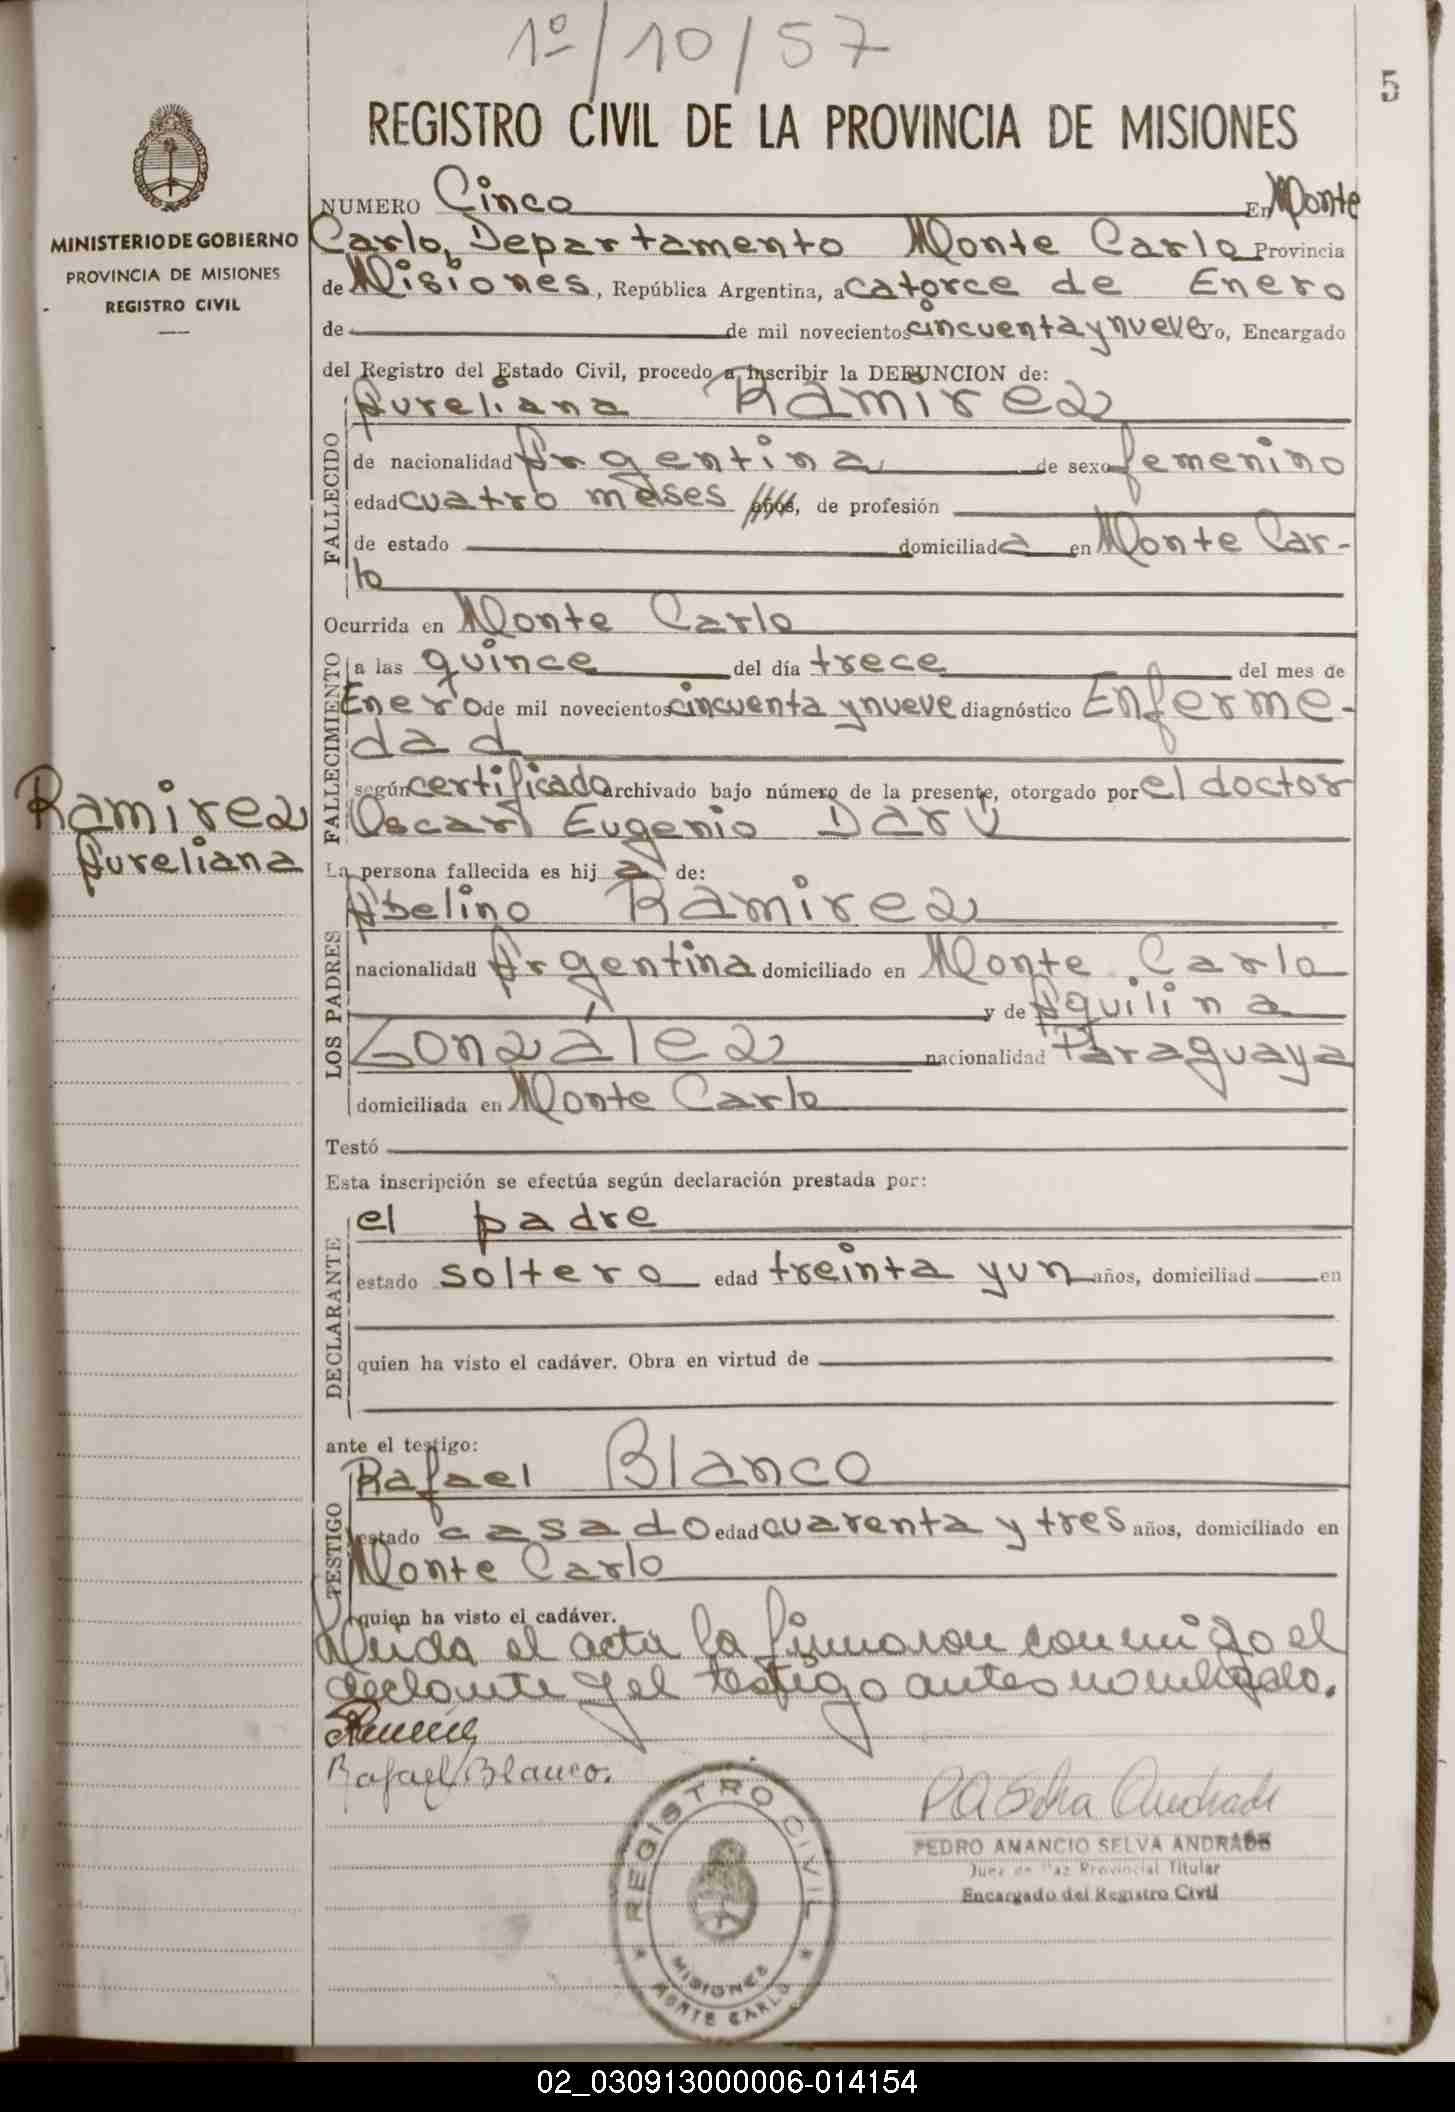 1º/10/57
5
REGISTRO CIVIL DE LA PROVINCIA DE MISIONES
MINISTERIO DE GOBIERNO
PROVINCIA DE MISIONES
REGISTRO CIVIL
NUMERO Cinco En Monte
Carlo, Departamento Monte Carlo Provincia
de Misiones, República Argentina, a catorce de Enero
de de mil novecientos cincuenta y nueve Yo, Encargado
del Registro del Estado Civil, procedo a inscribir la DEFUNCION de:
Aureliana Ramirez
FALLECIDO
de nacionalidad Argentina de sexo femenino
edad cuatro meses años, de profesión
de estado domiciliada en Monte Car-
lo
Ocurrida en Monte Carlo
FALLECIMIENTO
a las quince del día trece del mes de
Enero de mil novecientos cincuenta y nueve diagnóstico Enferme-
dad
según certificado archivado bajo número de la presente, otorgado por el doctor
Oscar Eugenio Darú
Ramirez
Aureliana
La persona fallecida es hija de:
Abelino Ramirez
LOS PADRES
nacionalidad Argentina domiciliado en Monte Carlo
y de Aquilina
González nacionalidad Paraguaya
domiciliada en Monte Carlo
Testó
Esta inscripción se efectúa según declaración prestada por:
el padre
DECLARANTE
estado soltero edad treinta y un años, domiciliad en
quien ha visto el cadáver. Obra en virtud de
ante el testigo:
Rafael Blanco
TESTIGO
estado casado edad cuarenta y tres años, domiciliado en
Monte Carlo
quien ha visto el cadáver.
Leida el acta la firmaron conmigo el
declarante y el testigo antes nombrado.
Rafael Blanco.
REGISTRO CIVIL
MISIONES
MONTE CARLO
PA Selva Andrade
PEDRO AMANCIO SELVA ANDRADE
Juez de Paz Provincial Titular
Encargado del Registro Civil
02_030913000006-014154